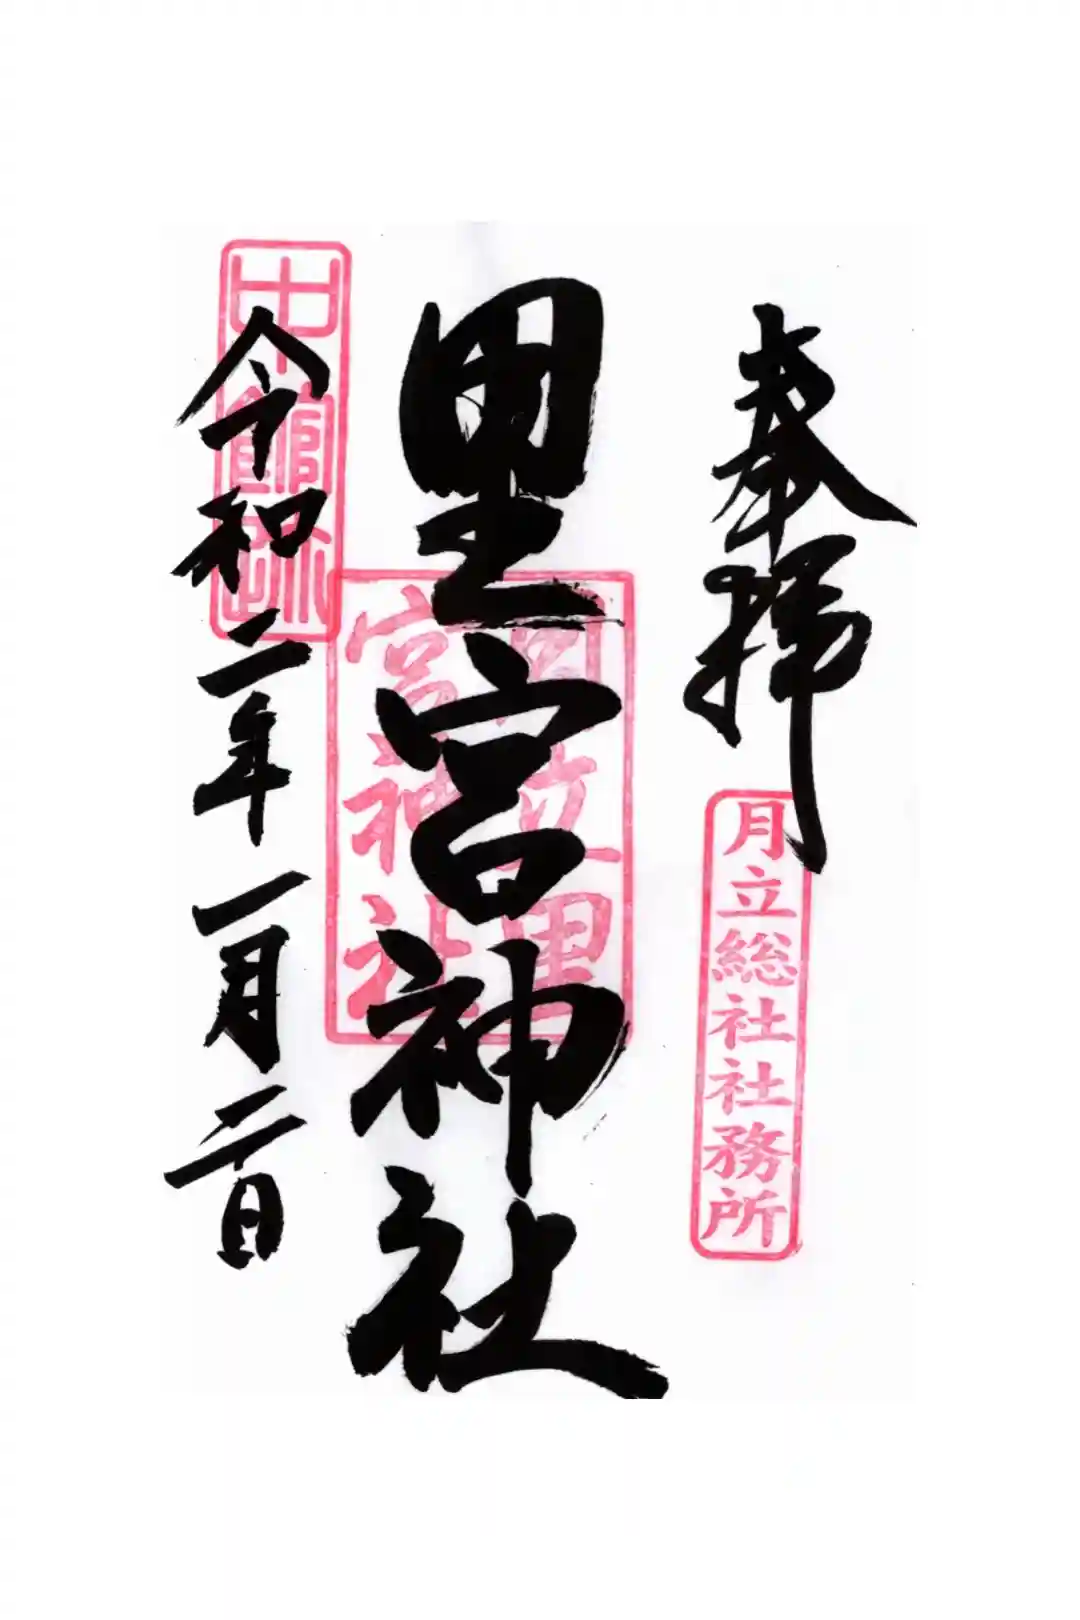 奉拝
月立総社社務所
里宮神社
月立里
宮神社
中館跡
令和二年一月二日